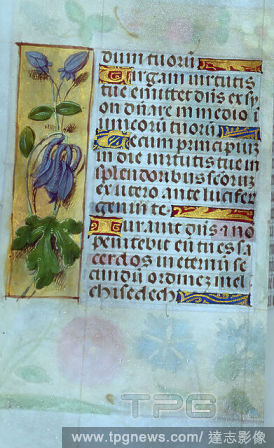 dum tuorũ
Virgam uirtutis
tue emittet dñs ex sy
on dñare in medio i
nimicorũ tuorũ
Tecum principiũ
in die uirtutis tue in
splendoribus scõrum
ex utero ante lucifer
genui te
Iurauit dñs & nõ
penitebit eũ tu es sa
cerdos in eternũ se
cundũ ordinez mel
chisedech
TPG
www.tpgnews.com/達志影像